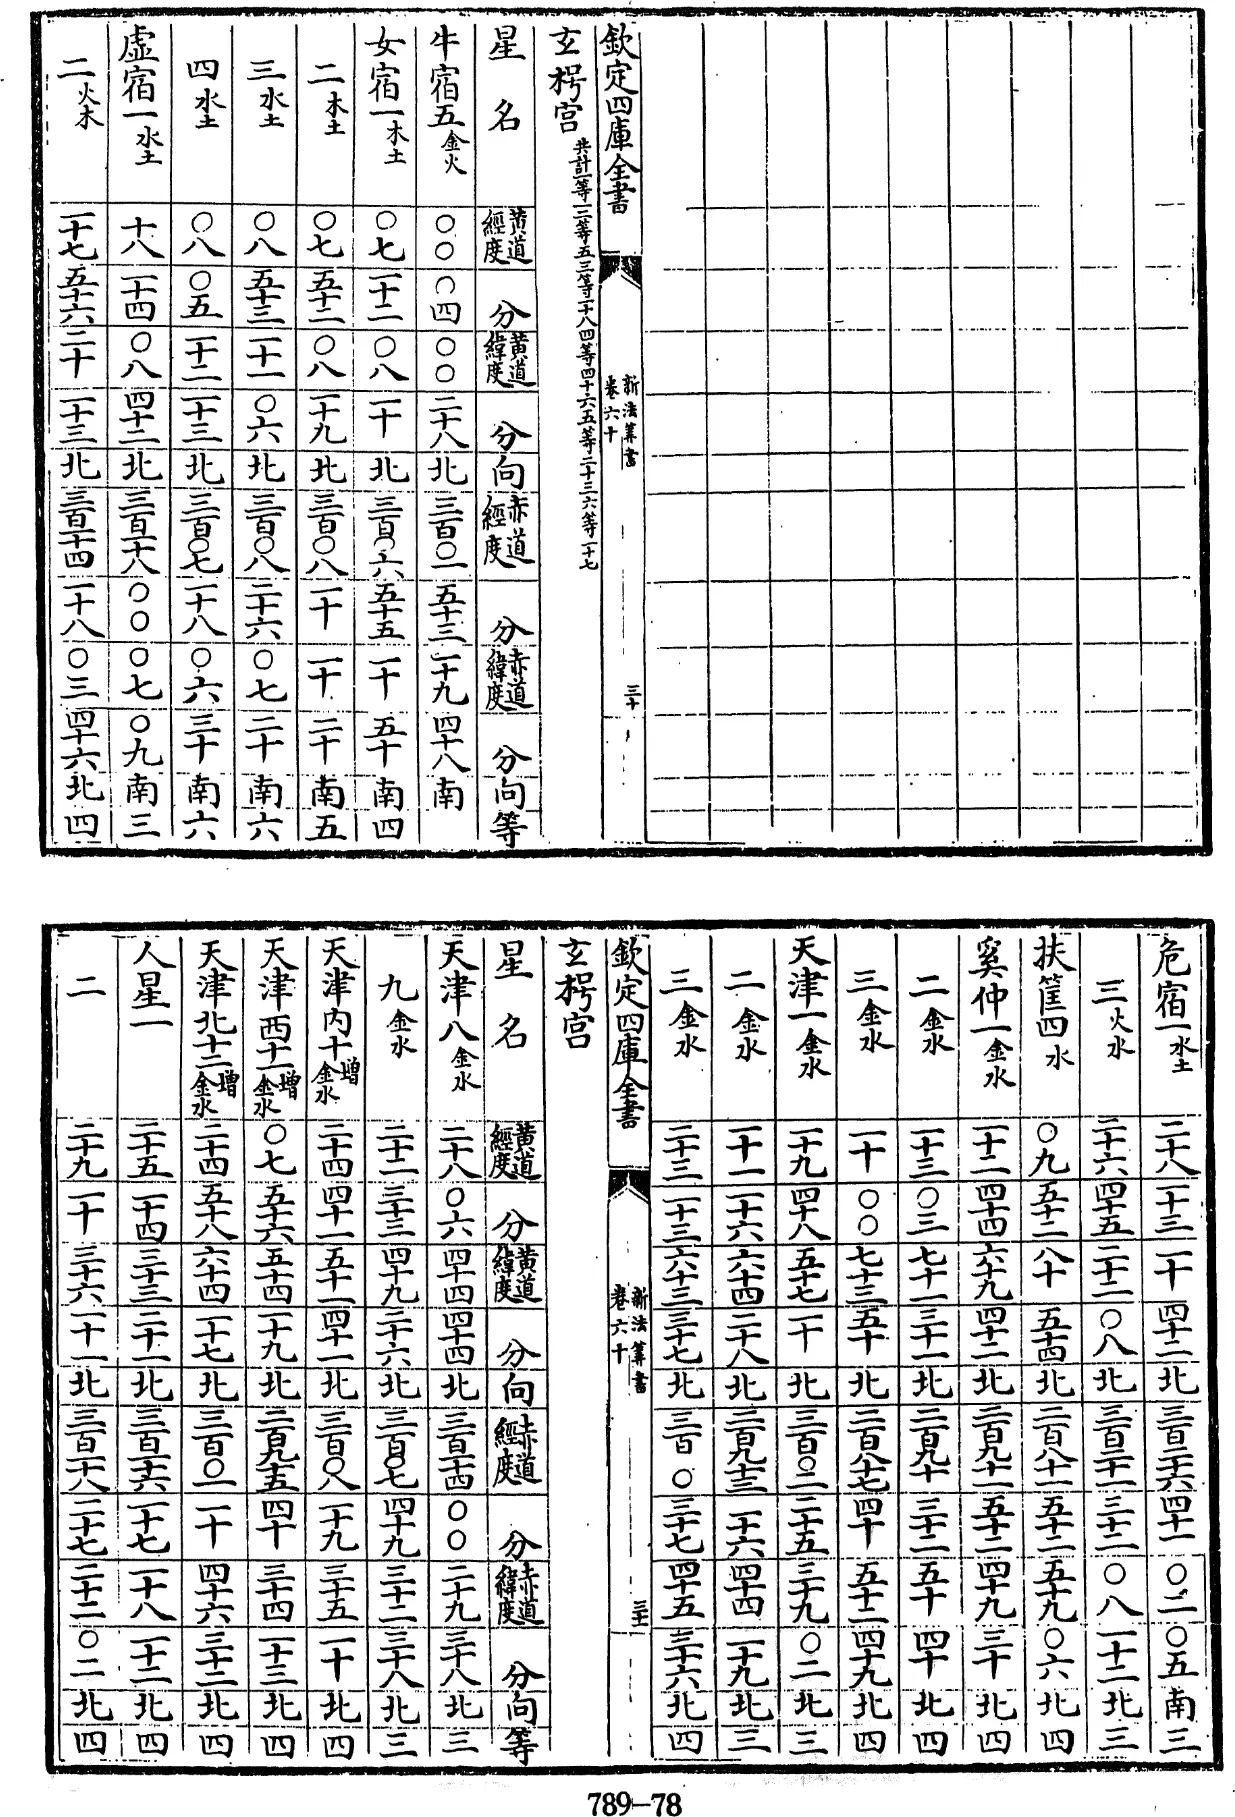 欽定四庫全書
新法筭書
卷六十
三十
玄枵宮 共計一等一二等五三等一十八四等四十六五等二十三六等一十七
星名 黃道經度 分 黃道緯度 分 向 赤道經度 分 赤道緯度 分 向 等
牛宿五 金火 〇〇 〇四 〇〇 二十八 北 三百〇一 五十三 一十九 四十八 南
女宿一 木土 〇七 一十二 〇八 一十 北 三百〇六 五十五 一十 五十 南 四
二 木土 〇七 五十二 〇八 一十九 北 三百〇八 一十 一十 二十 南 五
三 水土 〇八 五十三 一十一 〇六 北 三百〇八 二十六 〇七 二十 南 六
四 水土 〇八 〇五 一十二 一十三 北 三百〇七 一十八 〇六 三十 南 六
虛宿一 水土 十八 一十四 〇八 四十二 北 三百一十八 〇〇 〇七 〇九 南 三
二 火木 一十七 五十六 二十 一十三 北 三百一十四 一十八 〇三 四十六 北 四
危宿一 水土 二十八 一十三 一十 四十二 北 三百二十六 四十一 〇二 〇五 南 三
三 火水 二十六 四十五 二十二 〇八 北 三百二十一 三十二 〇八 一十二 北 三
扶筐四 水 〇九 五十二 八十 五十四 北 二百八十一 五十二 五十九 〇六 北 四
奚仲一 金水 一十二 四十四 六十九 四十二 北 二百九十一 五十二 四十九 三十 北 四
二 金水 一十三 〇三 七十一 三十一 北 二百九十 三十二 五十 四十 北 四
三 金水 一十 〇〇 七十三 五十 北 二百八十七 四十 五十二 四十九 北 四
天津一 金水 一十九 四十八 五十七 一十 北 三百〇二 二十五 三十九 〇二 北 三
二 金水 一十一 一十六 六十四 二十八 北 二百九十三 一十六 四十四 一十九 北 三
三 金水 二十三 一十三 六十三 三十七 北 三百〇 三十七 四十五 三十六 北 四
欽定四庫全書
新法筭書
卷六十
三十一
玄枵宮
星名 黃道經度 分 黃道緯度 分 向 赤道經度 分 赤道緯度 分 向 等
天津八 金水 二十八 〇六 四十四 四十四 北 三百一十四 〇〇 二十九 三十八 北 三
九 金水 二十二 三十三 四十九 二十六 北 三百〇七 四十九 三十二 三十八 北 三
天津內十 增 金水 二十四 四十一 五十一 四十一 北 三百〇八 一十九 三十五 一十 北 四
天津西十一 增 金水 〇七 五十六 五十四 一十九 北 二百九十五 四十 三十四 一十三 北 四
天津北十二 增 金水 二十四 五十八 六十四 一十七 北 三百〇一 一十 四十六 三十二 北 四
人星一 二十五 一十四 三十三 二十一 北 三百一十六 一十七 一十八 一十二 北 四
二 二十九 一十 三十六 一十一 北 三百一十八 二十七 二十二 〇二 北 四
789-78